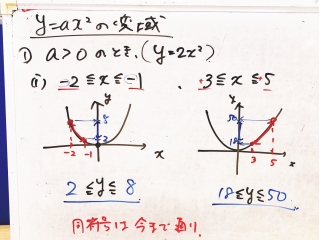 y=ax²の変域
1) a>0のとき、(y=2x²)
(i) -2≦x≦-1 ・ +3≦x≦+5
y
8
2
-2 -1 x
y
50
18
3 5 x
2≦y≦8 18≦y≦50
同符号は今まで通り.